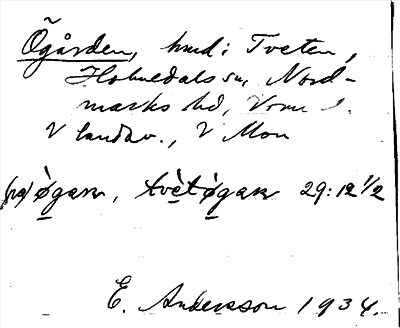 Ögården, hmd: Tveten,
Holmedals sn, Nord-
marks hd, Vrml.
V landsv., V Mon
(på) øgaɳ, tvètøgaɳ 29:12 1/2
E. Andersson 1934.